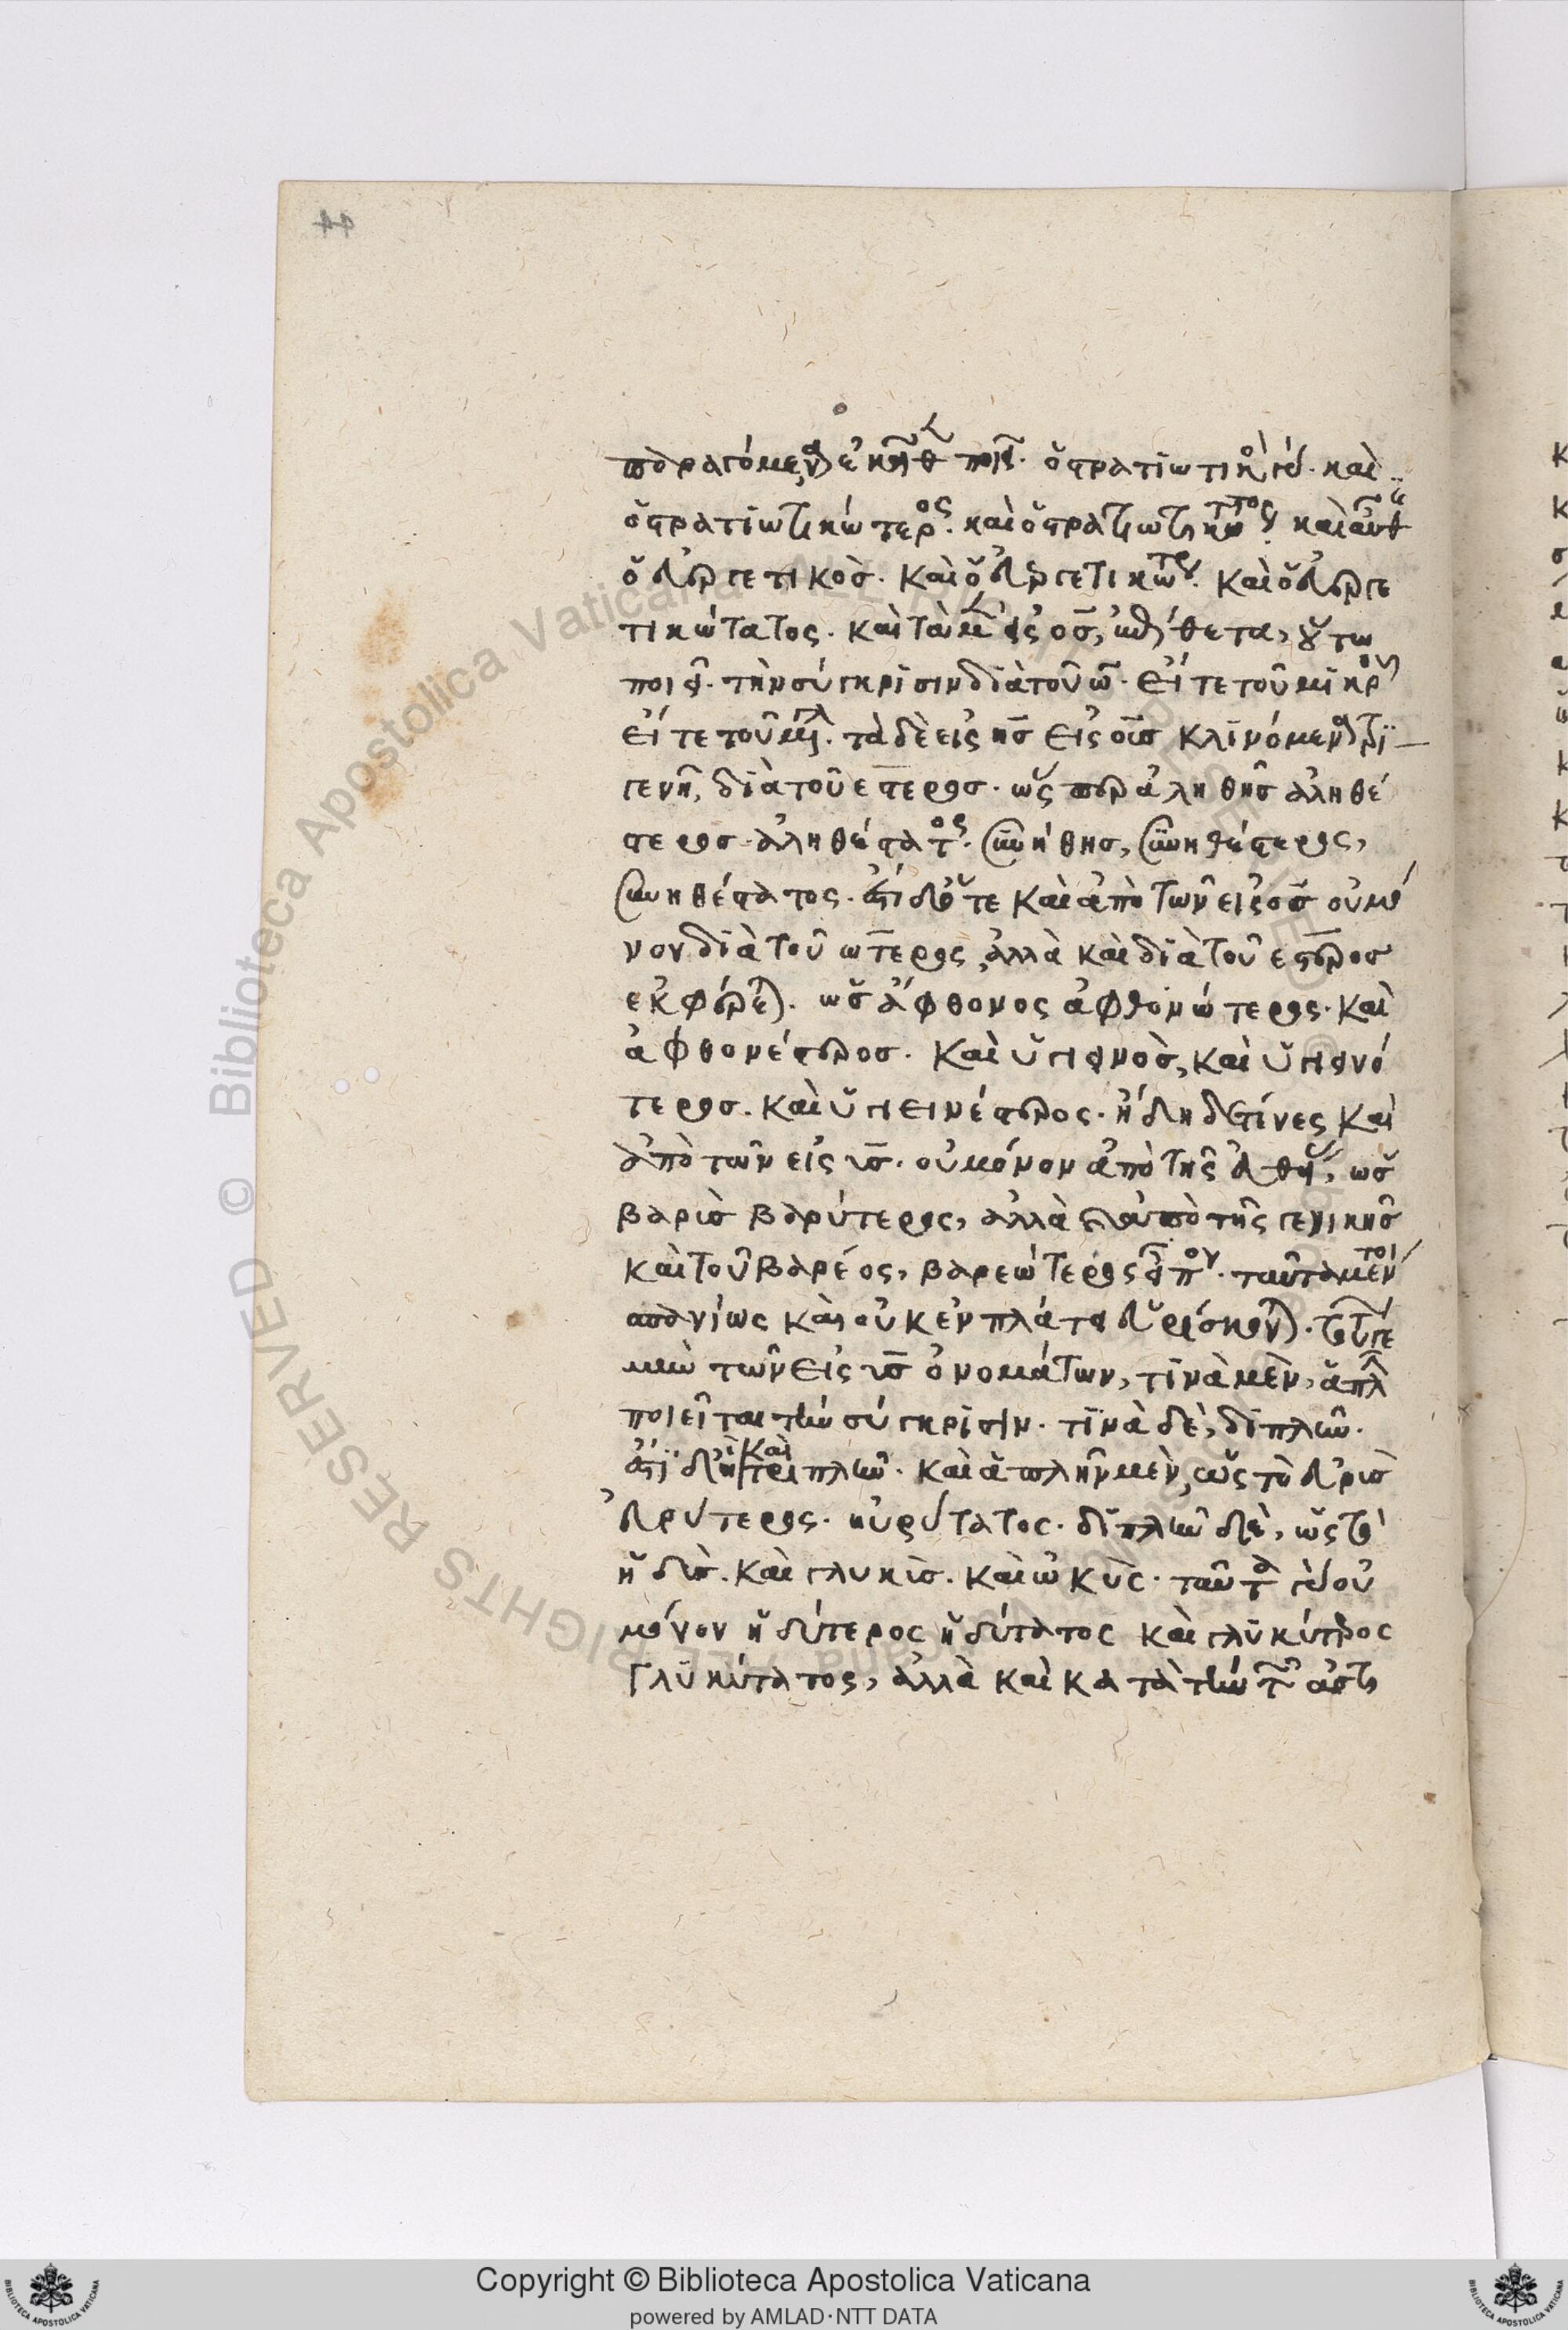 παραγόμενα ἐκεῖθεν ποιεῖ. ὁ στρατιωτικὸς γὰρ καὶ
ὁ στρατιωτικώτερος. καὶ ὁ στρατιωτικώτατος. καὶ
ὁ εὐεργετικὸς. καὶ ὁ εὐεργετικώτερος. καὶ ὁ εὐεργε
τικώτατος. καὶ τὰ μὲν εἰς ος, ἐπίθετα, οὕτω
ποιεῖ. τὴν σύγκρισιν διὰ τοῦ ω. εἴτε τοῦ μικροῦ
εἴτε τοῦ μεγάλου. τὰ δὲ εἰς ης εἰς ους κλινόμενα τρι
γενῆ, διὰ τοῦ εστερος. ὡς παρὰ ἀληθὴς ἀληθέ
στερος ἀληθέστατος. συνήθης, συνηθέστερος,
συνηθέστατος. ἔστι δ' ὅτε καὶ ἀπὸ τῶν εἰς ος οὐ μό
νον διὰ τοῦ ωτερος, ἀλλὰ καὶ διὰ τοῦ εστερος
ἐκφέρεται. ὡς ἄφθονος ἀφθονώτερος. καὶ
ἀφθονέστερος. καὶ ὑγιεινὸς, καὶ ὑγιεινό
τερος. καὶ ὑγιεινέστερος. ἤδη δέ τινες καὶ
ἀπὸ τῶν εἰς υς. οὐ μόνον ἀπὸ τῆς εὐθείας, ὡς
βαρὺς βαρύτερος, ἀλλὰ καὶ ἀπὸ τῆς γενικῆς
καὶ τοῦ βαρέος, βαρεώτερος εἶπον. ταῦτα μέντοι
σπανίως καὶ οὐκ ἐν πλάτει εὑρίσκονται. τῶν γε
μὴν τῶν εἰς υς ὀνομάτων, τινὰ μὲν, ἁπλῆν
ποιεῖται τὴν σύγκρισιν. τινὰ δὲ, διπλῶν.
ἔστι δ' ἃ καὶ τριπλῶν. καὶ ἁπλῆν μὲν, ὡς τὸ εὐρὺς
εὐρύτερος. εὐρύτατος. διπλῶν δὲ, ὡς τὸ
ἡδὺς. καὶ γλυκὺς. καὶ ὠκὺς. ταῦτα γὰρ οὐ
μόνον ἡδύτερος ἡδύτατος καὶ γλυκύτερος
γλυκύτατος, ἀλλὰ καὶ κατὰ τὴν
44
Copyright © Biblioteca Apostolica Vaticana
powered by AMLAD·NTT DATA
© Biblioteca Apostolica Vaticana ALL RIGHTS RESERVED